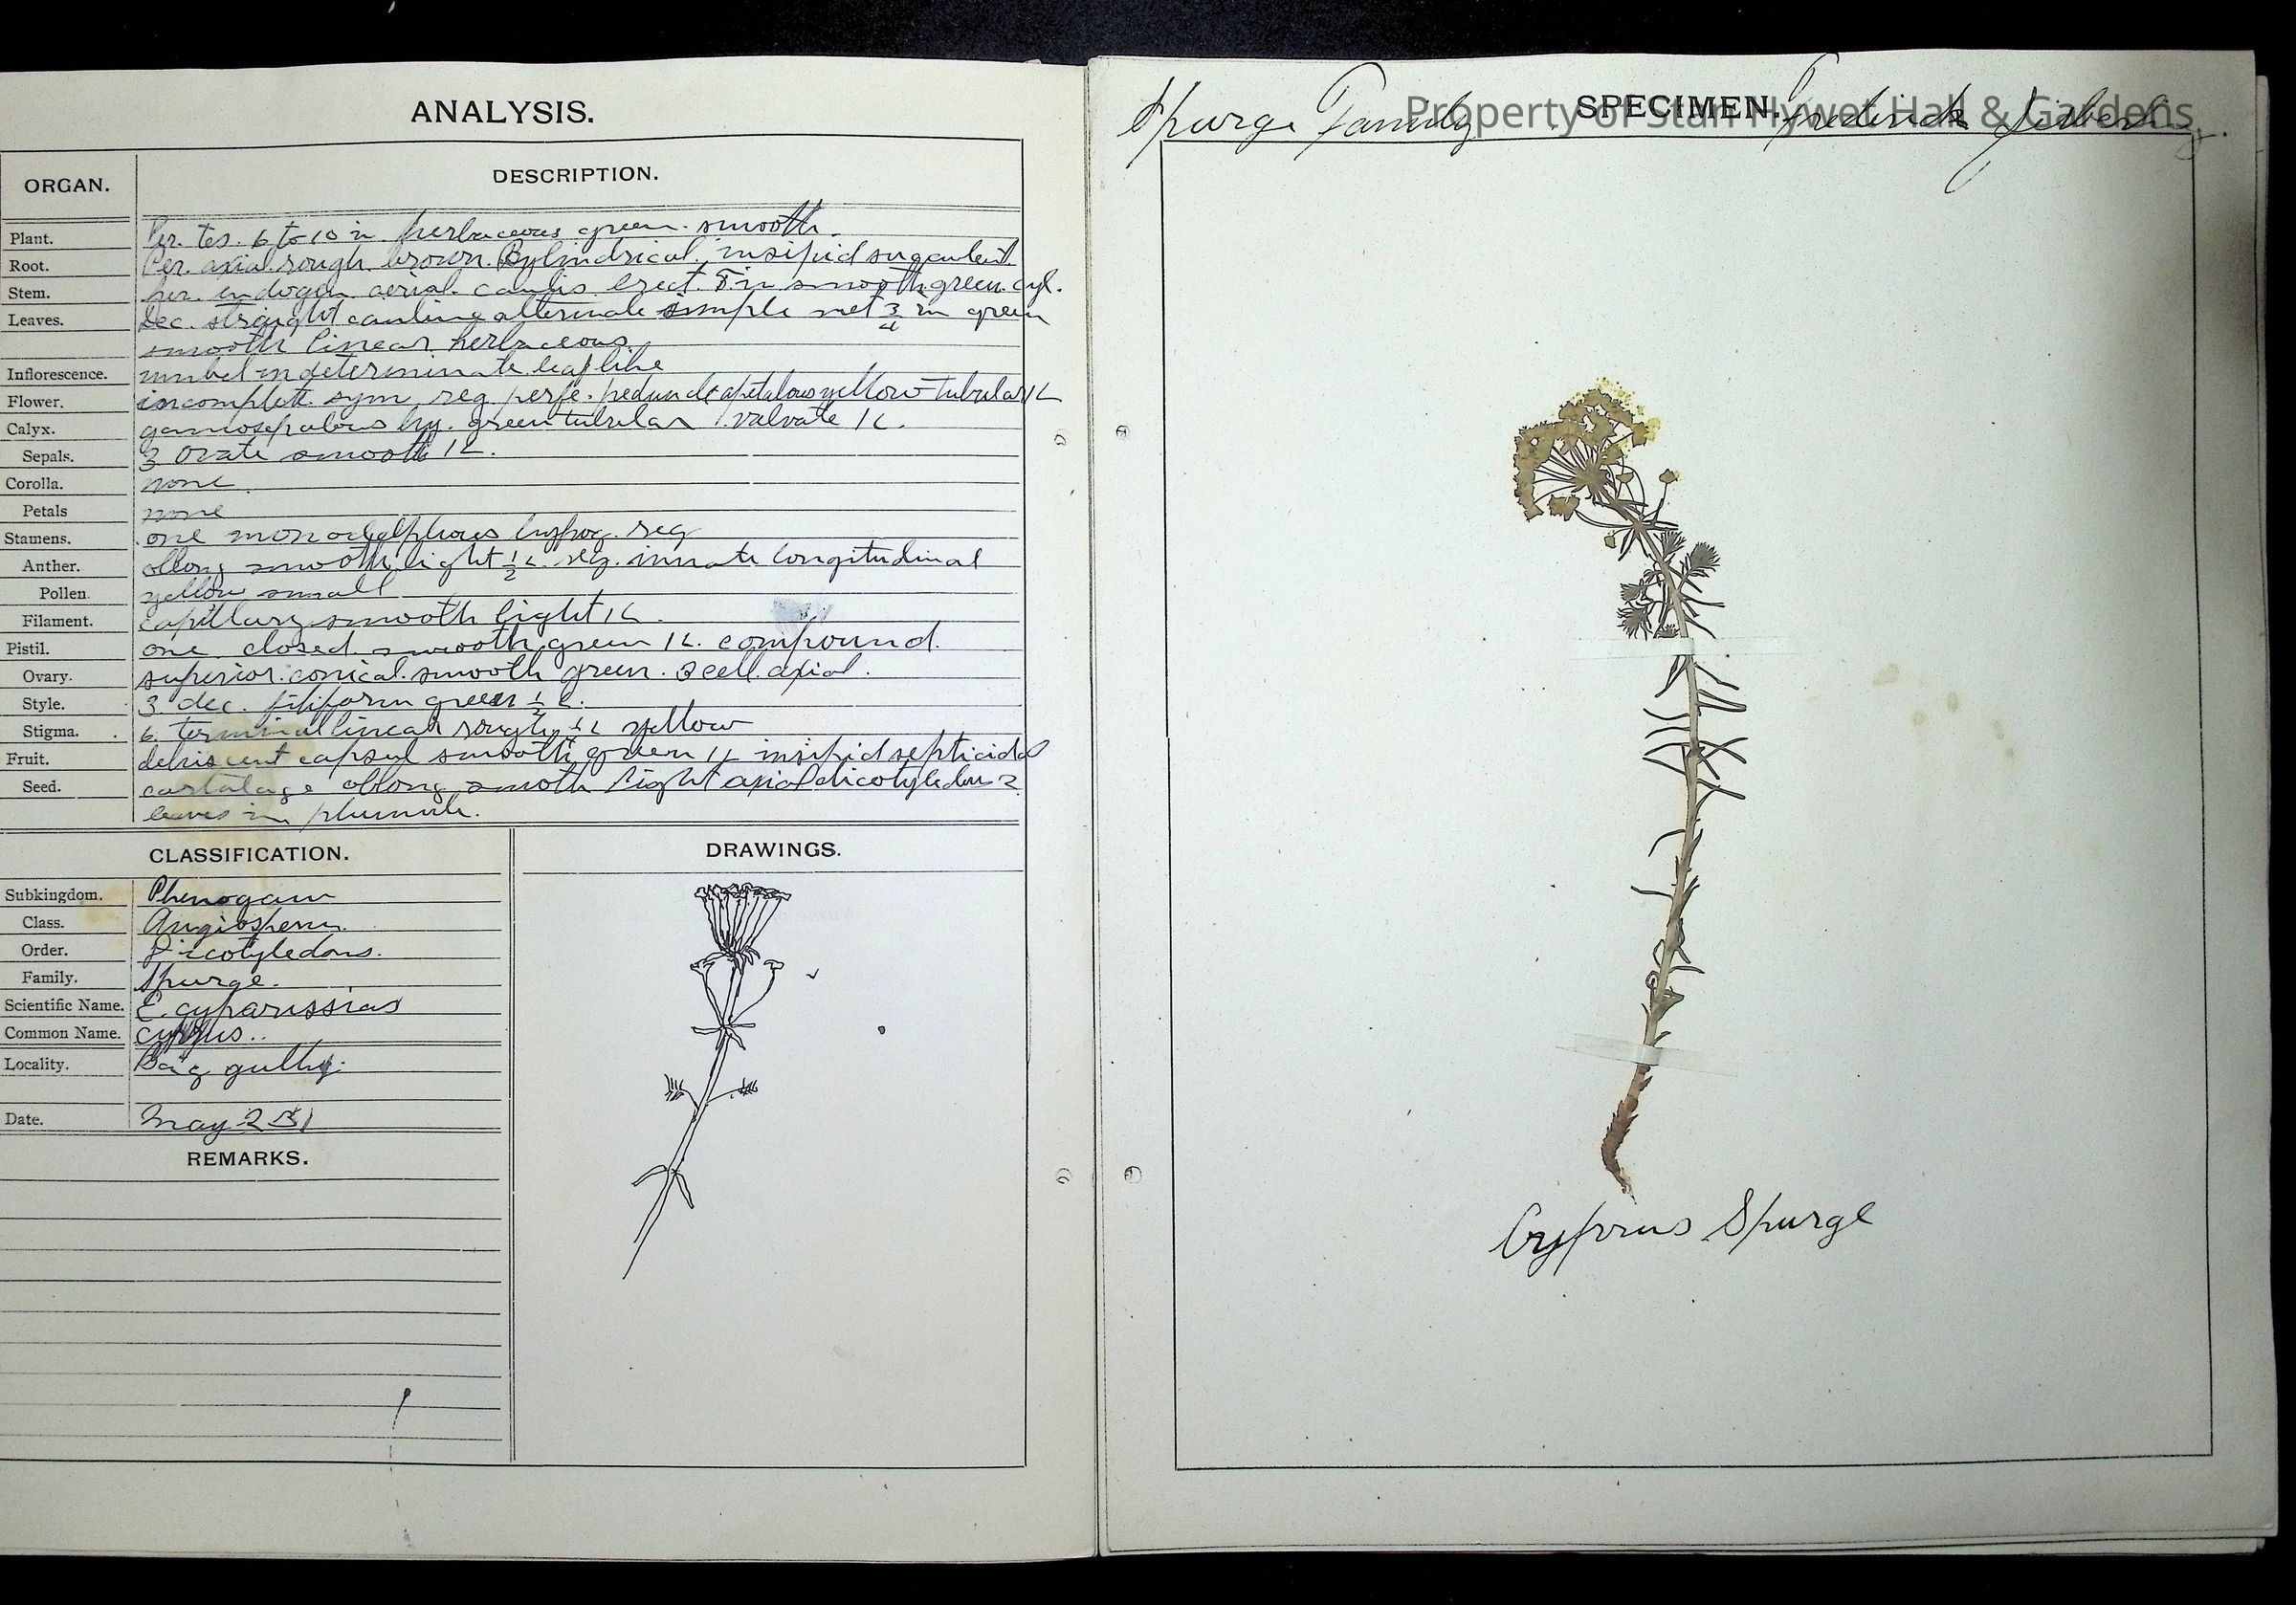 ANALYSIS.
ORGAN. DESCRIPTION.
Plant. Per. tes. 6 to 10 in herbaceous green. smooth.
Root. Per. axial rough brown. Cylindrical, insipid
Stem. her. endogen aerial caulis erect 5 in smooth green. cyl.
Leaves. Dec. straight cauline alternate simple net 3/4 in green
smooth linear herbaceous.
Inflorescence. umbel indeterminate leaf like
Flower. incomplete. sym. reg. perfe. apetalous yellow tubular 1L
Calyx. gamosepalous hy. green tubular valvate 1L.
Sepals. 3 ovate smooth 1L.
Corolla. none.
Petals none
Stamens. one monodelphous hypog. reg
Anther. oblong smooth light 1/2 L. reg. innate longitudinal
Pollen. yellow small
Filament. capillary smooth light 1L.
Pistil. one closed. smooth, green 1L. compound.
Ovary. superior. conical. smooth green. 3 cell. axial.
Style. 3. dec. filiform green 1/2 L.
Stigma. 6. terminal linear yellow
Fruit. dehiscent capsul smooth green 1L insipid septicidal
Seed. oblong smoth light axial dicotyledon 2
leaves in plumule.
CLASSIFICATION.
Subkingdom. Phenogam
Class. Angiosperm.
Order. Dicotyledons.
Family. Spurge.
Scientific Name. E. cyparissias
Common Name.
Locality. Big gully.
Date. May 2
REMARKS.
DRAWINGS.
Spurge Family SPECIMEN. Fredrick Seiberling.
Property of Stan Hywet Hall & Gardens
Cyprus Spurge